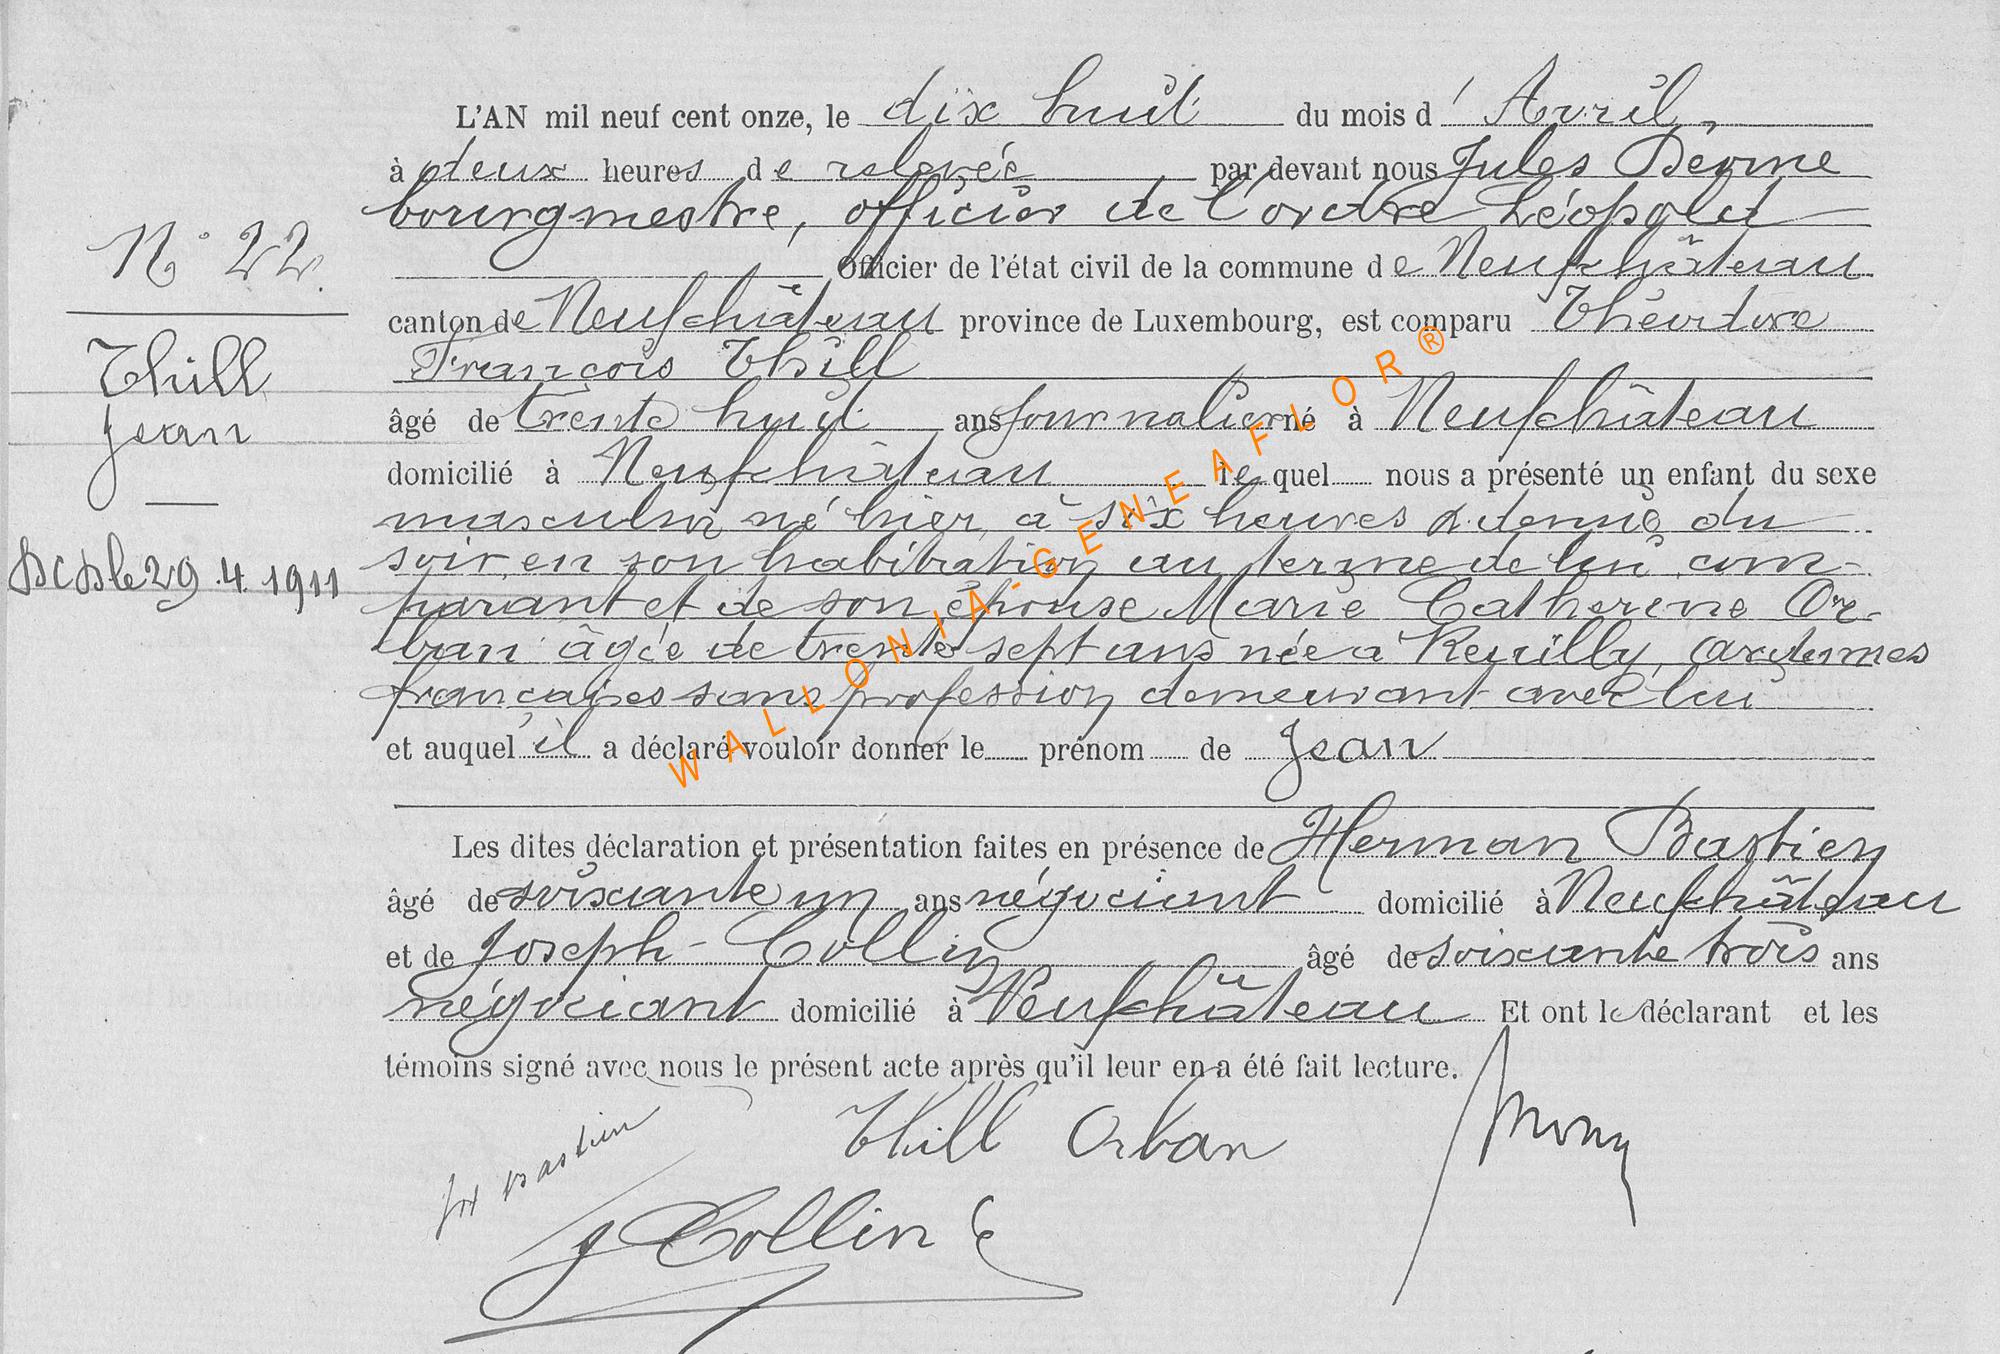 L'AN mil neuf cent onze, le dix huit du mois d'Avril,
à deux heures de relevée par devant nous Jules
bourgmestre, officier de l'ordre Léopold
Officier de l'état civil de la commune de Neufchâteau
canton de Neufchâteau province de Luxembourg, est comparu Théodore
François Thill
âgé de trente huit ans journalier né à Neufchâteau
domicilié à Neufchâteau lequel nous a présenté un enfant du sexe
masculin né hier à six heures & demie du
soir, en son habitation au terme de lui com-
parant et de son épouse Marie Catherine Or-
ban âgée de trente sept ans née à Ardennes
françaises sans profession demeurant avec lui
et auquel il a déclaré vouloir donner le prénom de Jean
Les dites déclaration et présentation faites en présence de Herman Bastien
âgé de soixante un ans négociant domicilié à Neufchâteau
et de Joseph Collin âgé de soixante trois ans
négociant domicilié à Neufchâteau Et ont le déclarant et les
témoins signé avec nous le présent acte après qu'il leur en a été fait lecture.
N° 22.
Thill
Jean
Dcd le 29.4.1911
Bastien
Thill Orban
J Collin
WALLONIA-GENEAFLOR®